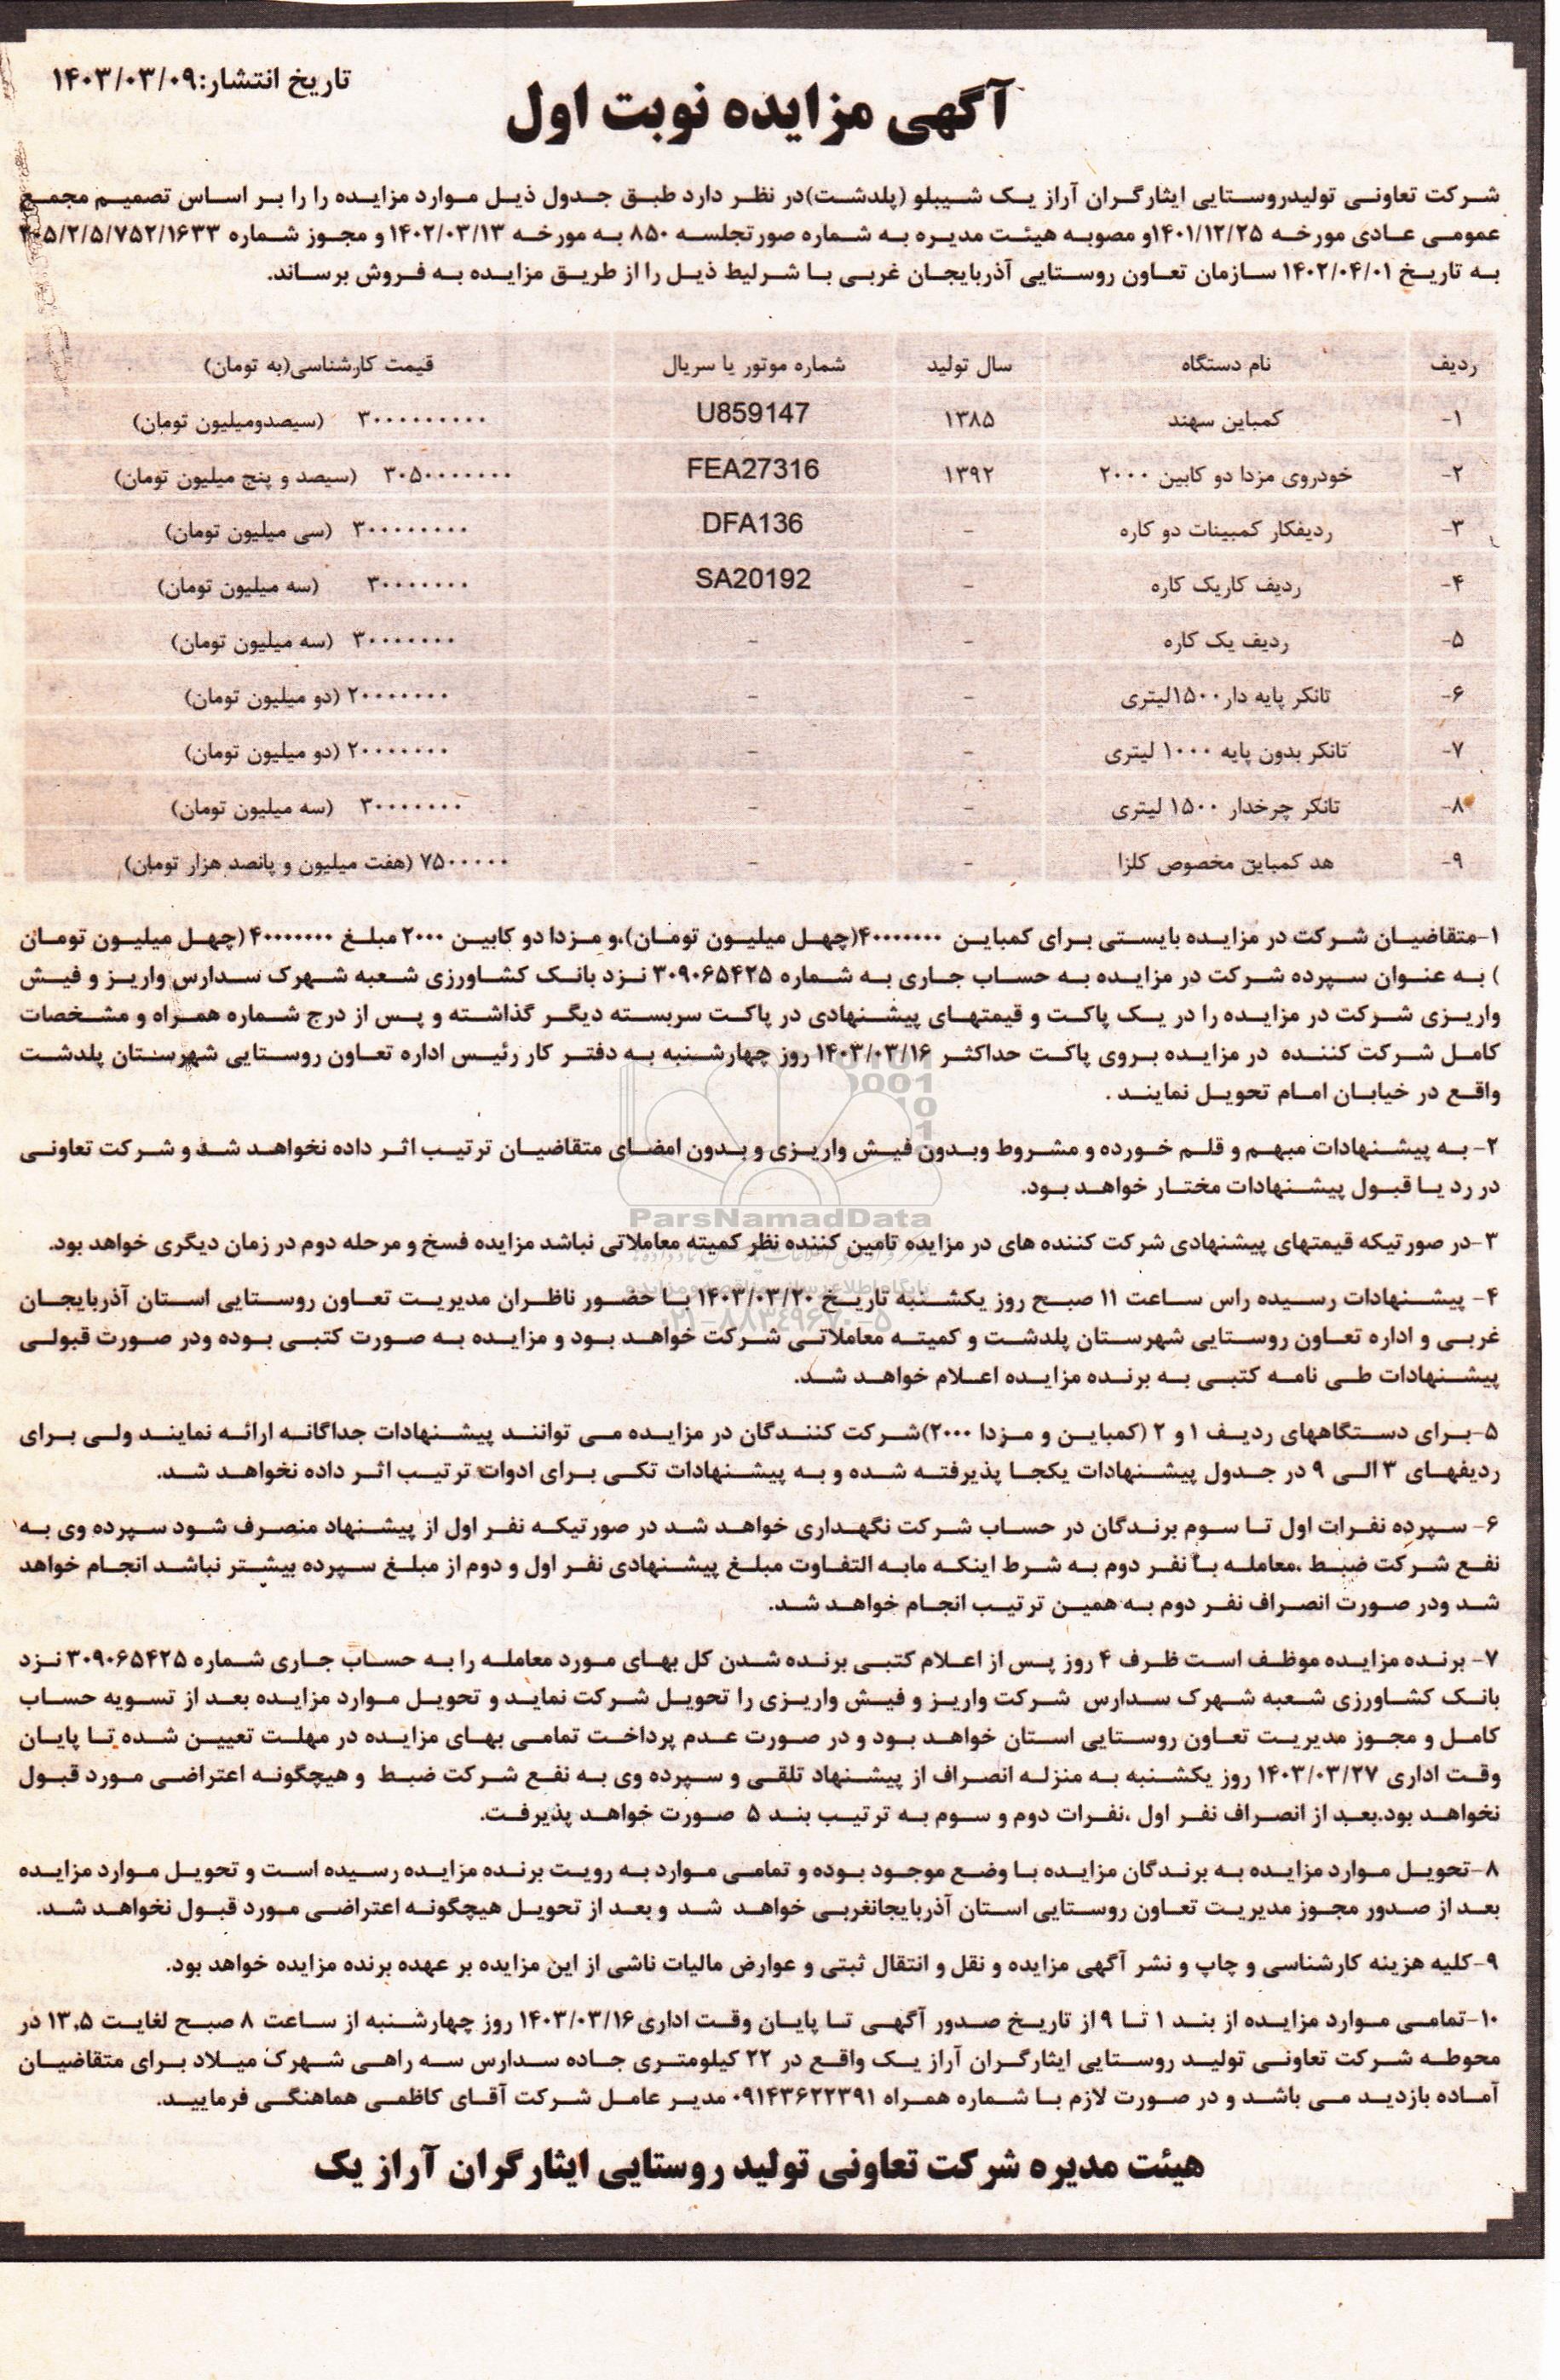 تاریخ انتشار:۱۴۰۳/۰۳/۰۹
آگهی مزایده نوبت اول
شرکت تعاونی تولیدروستایی ایثارگران آراز یک شیبلو (پلدشت)در نظر دارد طبق جدول ذیل موارد مزایده را را بر اساس تصمیم مجمع
عمومی عادی مورخه ۱۴۰۱/۱۲/۲۵و مصوبه هیئت مدیره به شماره صورتجلسه ۸۵۰ به مورخه ۱۴۰۲/۰۳/۱۳ و مجوز شماره
به تاریخ ۱۴۰۲/۰۴/۰۱ سازمان تعاون روستایی آذربایجان غربی با شرلیط ذیل را از طریق مزایده به فروش برساند.
ردیف نام دستگاه سال تولید شماره موتور یا سریال قیمت کارشناسی(به تومان)
۱- کمباین سهند ۱۳۸۵ U859147 ۳۰۰۰۰۰۰۰۰۰ (سیصدومیلیون تومان)
۲- خودروی مزدا دو کابین ۲۰۰۰ ۱۳۹۲ FEA27316 ۳۰۵۰۰۰۰۰۰۰ (سیصد و پنج میلیون تومان)
۳- ردیفکار کمبینات دو کاره - DFA136 ۳۰۰۰۰۰۰۰۰ (سی میلیون تومان)
۴- ردیف کاریک کاره - SA20192 ۳۰۰۰۰۰۰۰ (سه میلیون تومان)
۵- ردیف یک کاره - - ۳۰۰۰۰۰۰۰ (سه میلیون تومان)
۶- تانکر پایه دار۱۵۰۰لیتری - - ۲۰۰۰۰۰۰۰ (دو میلیون تومان)
۷- تانکر بدون پایه ۱۰۰۰ لیتری - - ۲۰۰۰۰۰۰۰ (دو میلیون تومان)
۸- تانکر چرخدار ۱۵۰۰ لیتری - - ۳۰۰۰۰۰۰۰ (سه میلیون تومان)
۹- هد کمباین مخصوص کلزا - - ۷۵۰۰۰۰۰ (هفت میلیون و پانصد هزار تومان)
۱-متقاضیان شرکت در مزایده بایستی برای کمباین ۴۰۰۰۰۰۰۰(چهل میلیون تومان)،و مزدا دو کابین ۲۰۰۰ مبلغ ۴۰۰۰۰۰۰۰ (چهل میلیون تومان
) به عنوان سپرده شرکت در مزایده به حساب جاری به شماره ۳۰۹۰۶۵۴۲۵ نزد بانک کشاورزی شعبه شهرک سدارس واریز و فیش
واریزی شرکت در مزایده را در یک پاکت و قیمتهای پیشنهادی در پاکت سربسته دیگر گذاشته و پس از درج شماره همراه و مشخصات
کامل شرکت کننده در مزایده بروی پاکت حداکثر ۱۴۰۳/۰۳/۱۶ روز چهارشنبه به دفتر کار رئیس اداره تعاون روستایی شهرستان پلدشت
واقع در خیابان امام تحویل نمایند .
۲- به پیشنهادات مبهم و قلم خورده و مشروط وبدون فیش واریزی و بدون امضای متقاضیان ترتیب اثر داده نخواهد شد و شرکت تعاونی
در رد یا قبول پیشنهادات مختار خواهد بود.
ParsNamadData
۳-در صورتیکه قیمتهای پیشنهادی شرکت کننده های در مزایده تامین کننده نظر کمیته معاملاتی نباشد مزایده فسخ و مرحله دوم در زمان دیگری خواهد بود.
پایگاه اطلاع رسانی مناقصه و مزایده
۴- پیشنهادات رسیده راس ساعت ۱۱ صبح روز یکشنبه تاریخ ۱۴۰۳/۰۳/۲۰ با حضور ناظران مدیریت تعاون روستایی استان آذربایجان
۰۲۱-۸۸۳۴۹۶۷۰-۵
غربی و اداره تعاون روستایی شهرستان پلدشت و کمیته معاملاتی شرکت خواهد بود و مزایده به صورت کتبی بوده ودر صورت قبولی
پیشنهادات طی نامه کتبی به برنده مزایده اعلام خواهد شد.
۵-برای دستگاههای ردیف ۱ و ۲ (کمباین و مزدا ۲۰۰۰)شرکت کنندگان در مزایده می توانند پیشنهادات جداگانه ارائه نمایند ولی برای
ردیفهای ۳ الی ۹ در جدول پیشنهادات یکجا پذیرفته شده و به پیشنهادات تکی برای ادوات ترتیب اثر داده نخواهد شد.
۶- سپرده نفرات اول تا سوم برندگان در حساب شرکت نگهداری خواهد شد در صورتیکه نفر اول از پیشنهاد منصرف شود سپرده وی به
نفع شرکت ضبط ،معامله با نفر دوم به شرط اینکه مابه التفاوت مبلغ پیشنهادی نفر اول و دوم از مبلغ سپرده بیشتر نباشد انجام خواهد
شد ودر صورت انصراف نفر دوم به همین ترتیب انجام خواهد شد.
۷- برنده مزایده موظف است ظرف ۴ روز پس از اعلام کتبی برنده شدن کل بهای مورد معامله را به حساب جاری شماره ۳۰۹۰۶۵۴۲۵ نزد
بانک کشاورزی شعبه شهرک سدارس شرکت واریز و فیش واریزی را تحویل شرکت نماید و تحویل موارد مزایده بعد از تسویه حساب
کامل و مجوز مدیریت تعاون روستایی استان خواهد بود و در صورت عدم پرداخت تمامی بهای مزایده در مهلت تعیین شده تا پایان
وقت اداری ۱۴۰۳/۰۳/۲۷ روز یکشنبه به منزله انصراف از پیشنهاد تلقی و سپرده وی به نفع شرکت ضبط و هیچگونه اعتراضی مورد قبول
نخواهد بود.بعد از انصراف نفر اول ،نفرات دوم و سوم به ترتیب بند ۵ صورت خواهد پذیرفت.
۸-تحویل موارد مزایده به برندگان مزایده با وضع موجود بوده و تمامی موارد به رویت برنده مزایده رسیده است و تحویل موارد مزایده
بعد از صدور مجوز مدیریت تعاون روستایی استان آذربایجانغربی خواهد شد و بعد از تحویل هیچگونه اعتراضی مورد قبول نخواهد شد.
۹-کلیه هزینه کارشناسی و چاپ و نشر آگهی مزایده و نقل و انتقال ثبتی و عوارض مالیات ناشی از این مزایده بر عهده برنده مزایده خواهد بود.
۱۰-تمامی موارد مزایده از بند ۱ تا ۹ از تاریخ صدور آگهی تا پایان وقت اداری۱۴۰۳/۰۳/۱۶ روز چهارشنبه از ساعت ۸ صبح لغایت ۱۳،۵ در
محوطه شرکت تعاونی تولید روستایی ایثارگران آراز یک واقع در ۲۲ کیلومتری جاده سدارس سه راهی شهرک میلاد برای متقاضیان
آماده بازدید می باشد و در صورت لازم با شماره همراه ۰۹۱۴۳۶۲۲۳۹۱ مدیر عامل شرکت آقای کاظمی هماهنگی فرمایید.
هیئت مدیره شرکت تعاونی تولید روستایی ایثارگران آراز یک